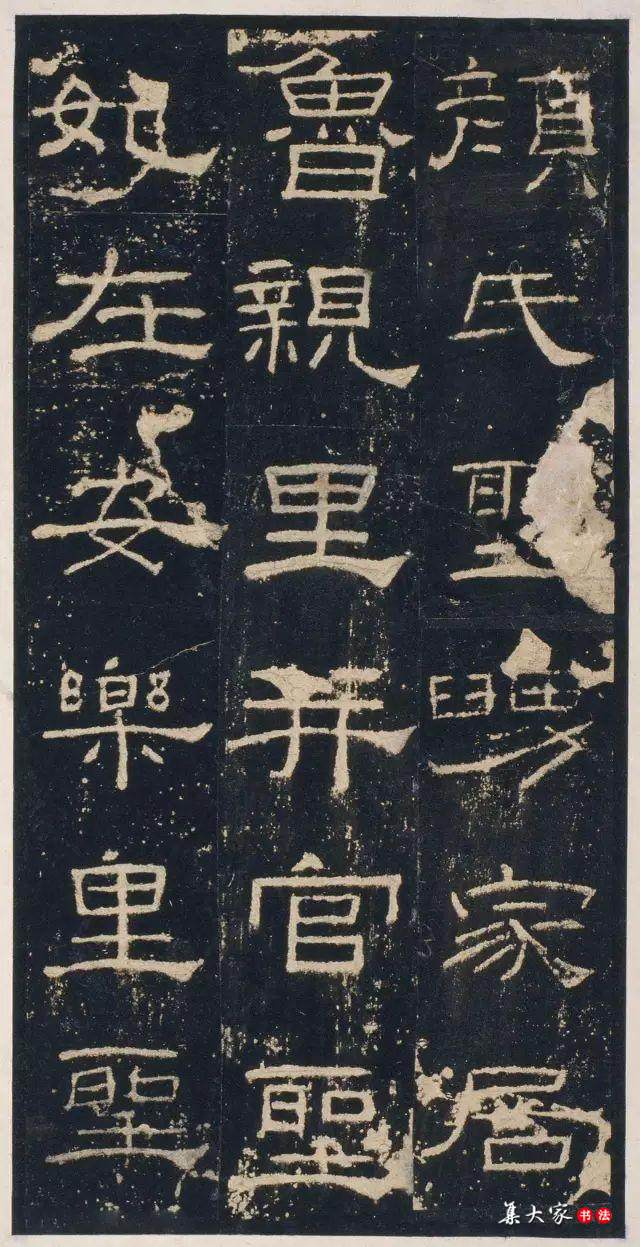 顏氏聖舅家居
魯親里并官聖
妃在安樂里聖
集大家书法